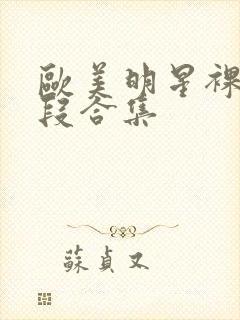 歐美明星裸
段合集
蘇貞又